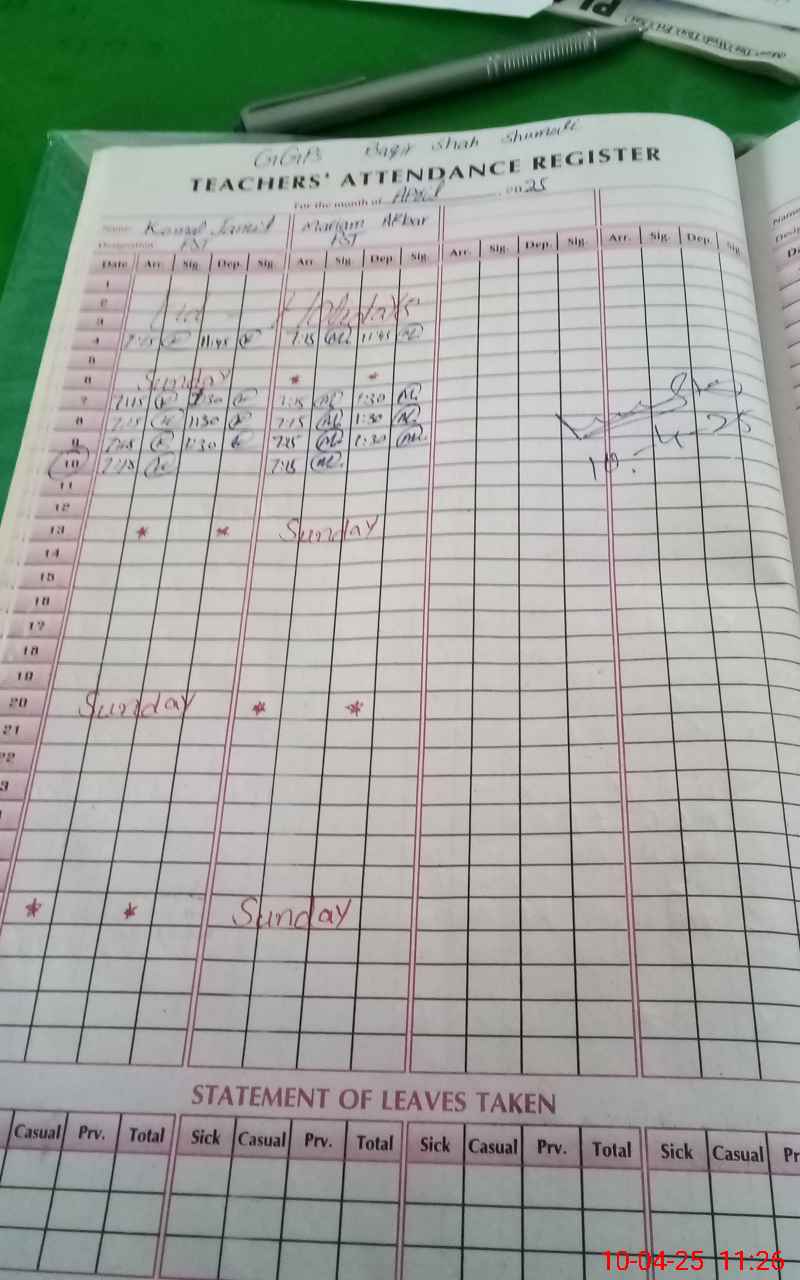 GGPS Baqir Shah Shumali
TEACHERS' ATTENDANCE REGISTER
For the month of April 2025
Name Kamal Mariam Akbar
Designation PST PST
Date Arr. Sig. Dep. Sig. Arr. Sig. Dep. Sig. Arr. Sig. Dep. Sig. Arr. Sig. Dep. Sig.
1
2
3 Holidays
4 7:45 11:45 7:45 11:45
5
6 Sunday * *
7 7:45 1:30 7:45 1:30
8 7:45 1:30 7:45 1:30
9 7:45 1:30 7:45 1:30
10 7:45 7:45
10-4-25
11
12
13 * * Sunday
14
15
16
17
18
19
20 Sunday * *
21
22
3
* * Sunday
STATEMENT OF LEAVES TAKEN
Casual Prv. Total Sick Casual Prv. Total Sick Casual Prv. Total Sick Casual Pr
10-04-25 11:26